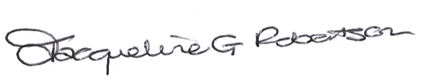 Jacqueline G Robertson